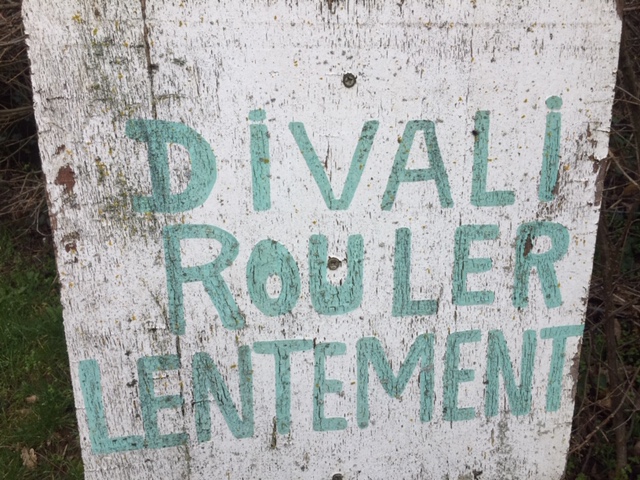 DiVALi
ROULER
LENTEMENT